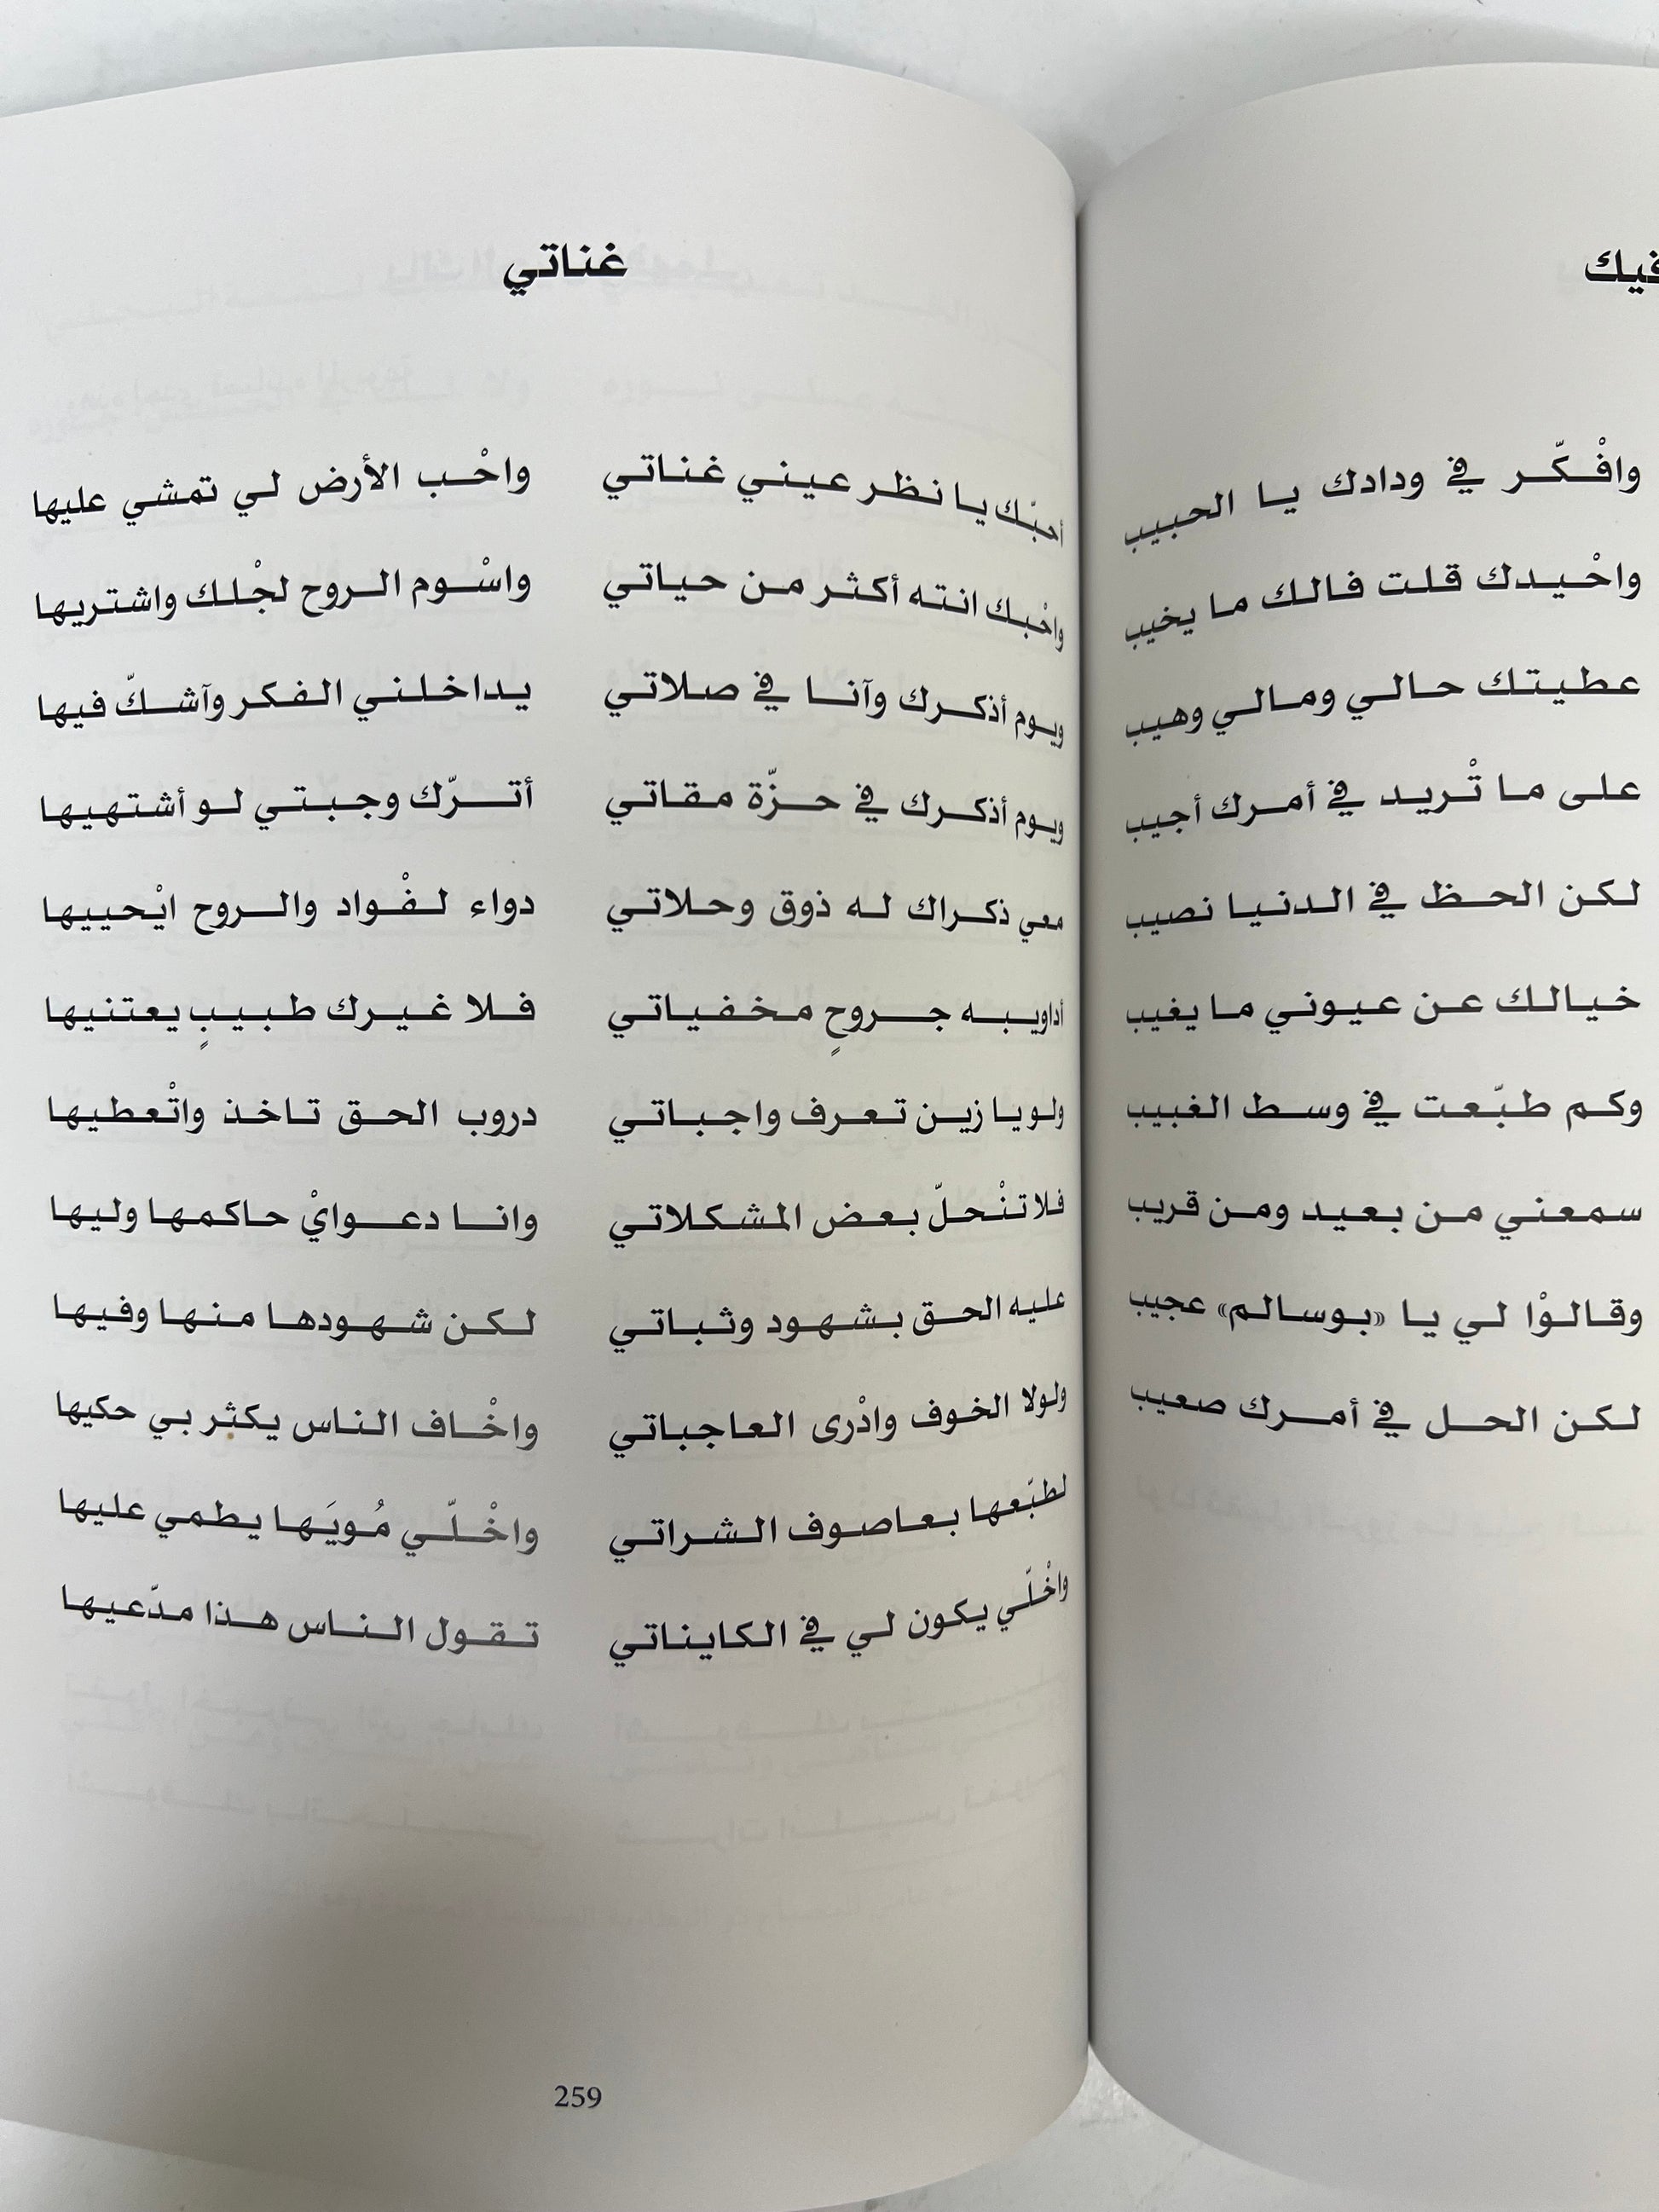 فيك
وافْكّر في ودادك يا الحبيب
واحْيدك قلت فالك ما يخيب
عطيتك حالي ومالي وهيب
على ما تْريد في أمرك أجيب
لكن الحظ في الدنيا نصيب
خيالك عن عيوني ما يغيب
وكم طبّعت في وسط الغبيب
سمعني من بعيد ومن قريب
وقالوْا لي يا «بوسالم» عجيب
لكن الحل في أمرك صعيب
غناتي
أحبّك يا نظر عيني غناتي واحْب الأرض لي تمشي عليها
واحْبك انته أكثر من حياتي واسْوم الروح لجْلك واشتريها
ويوم أذكرك وآنا في صلاتي يداخلني الفكر وآشكّ فيها
ويوم أذكرك في حزّة مقاتي أترّك وجبتي لو أشتهيها
معي ذكراك له ذوق وحلاتي دواء لفْواد والروح ايْحييها
أداويبه جروحٍ مخفياتي فلا غيرك طبيبٍ يعتنيها
ولو يا زين تعرف واجباتي دروب الحق تاخذ واتْعطيها
فلا تنْحلّ بعض المشكلاتي وانا دعوايْ حاكمها وليها
عليه الحق بشهود وثباتي لكن شهودها منها وفيها
ولولا الخوف وادْرى العاجباتي واخْاف الناس يكثر بي حكيها
لطبّعها بعاصوف الشراتي واخْلّي مُويَها يطمي عليها
واخْلّي يكون لي في الكايناتي تقول الناس هذا مدّعيها
259